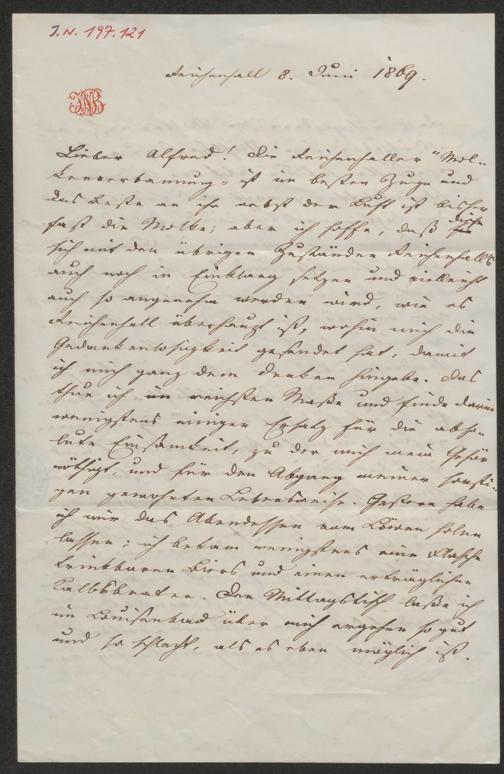 I.N. 197.121
Reichenhall 8. Juni 1869.
Lieber Alfred! Die Reichenhaller "Mol-
kenverbannung" ist im besten Zuge und
das Beste an ihr nebst der Luft ist bisher
fast die Molke; aber ich hoffe, daß diese
sich mit den übrigen Zuständen Reichenhalls
auch noch in Einklang setzen und vielleicht
auch so angenehm werden wird, wie es
Reichenhall überhaupt ist, wohin mich die
Gedankenlosigkeit gesendet hat, damit
ich mich ganz dem Denken hingebe. Das
thue ich im reichsten Maße und finde darin
wenigstens einigen Ersatz für die abso-
lute Einsamkeit, zu der mich mein Gehör
nöthigt, und für den Abgang meiner sonsti-
gen gewohnten Lebensweise. Gestern habe
ich mir das Abendessen vom Löwen holen
lassen; ich bekam wenigstens eine Flasche
trinkbaren Biers und einen erträglichen
Kalbsbraten. Den Mittagstisch lasse ich
im Louisenbad über mich ergehen so gut
und so schlecht, als es eben möglich ist.